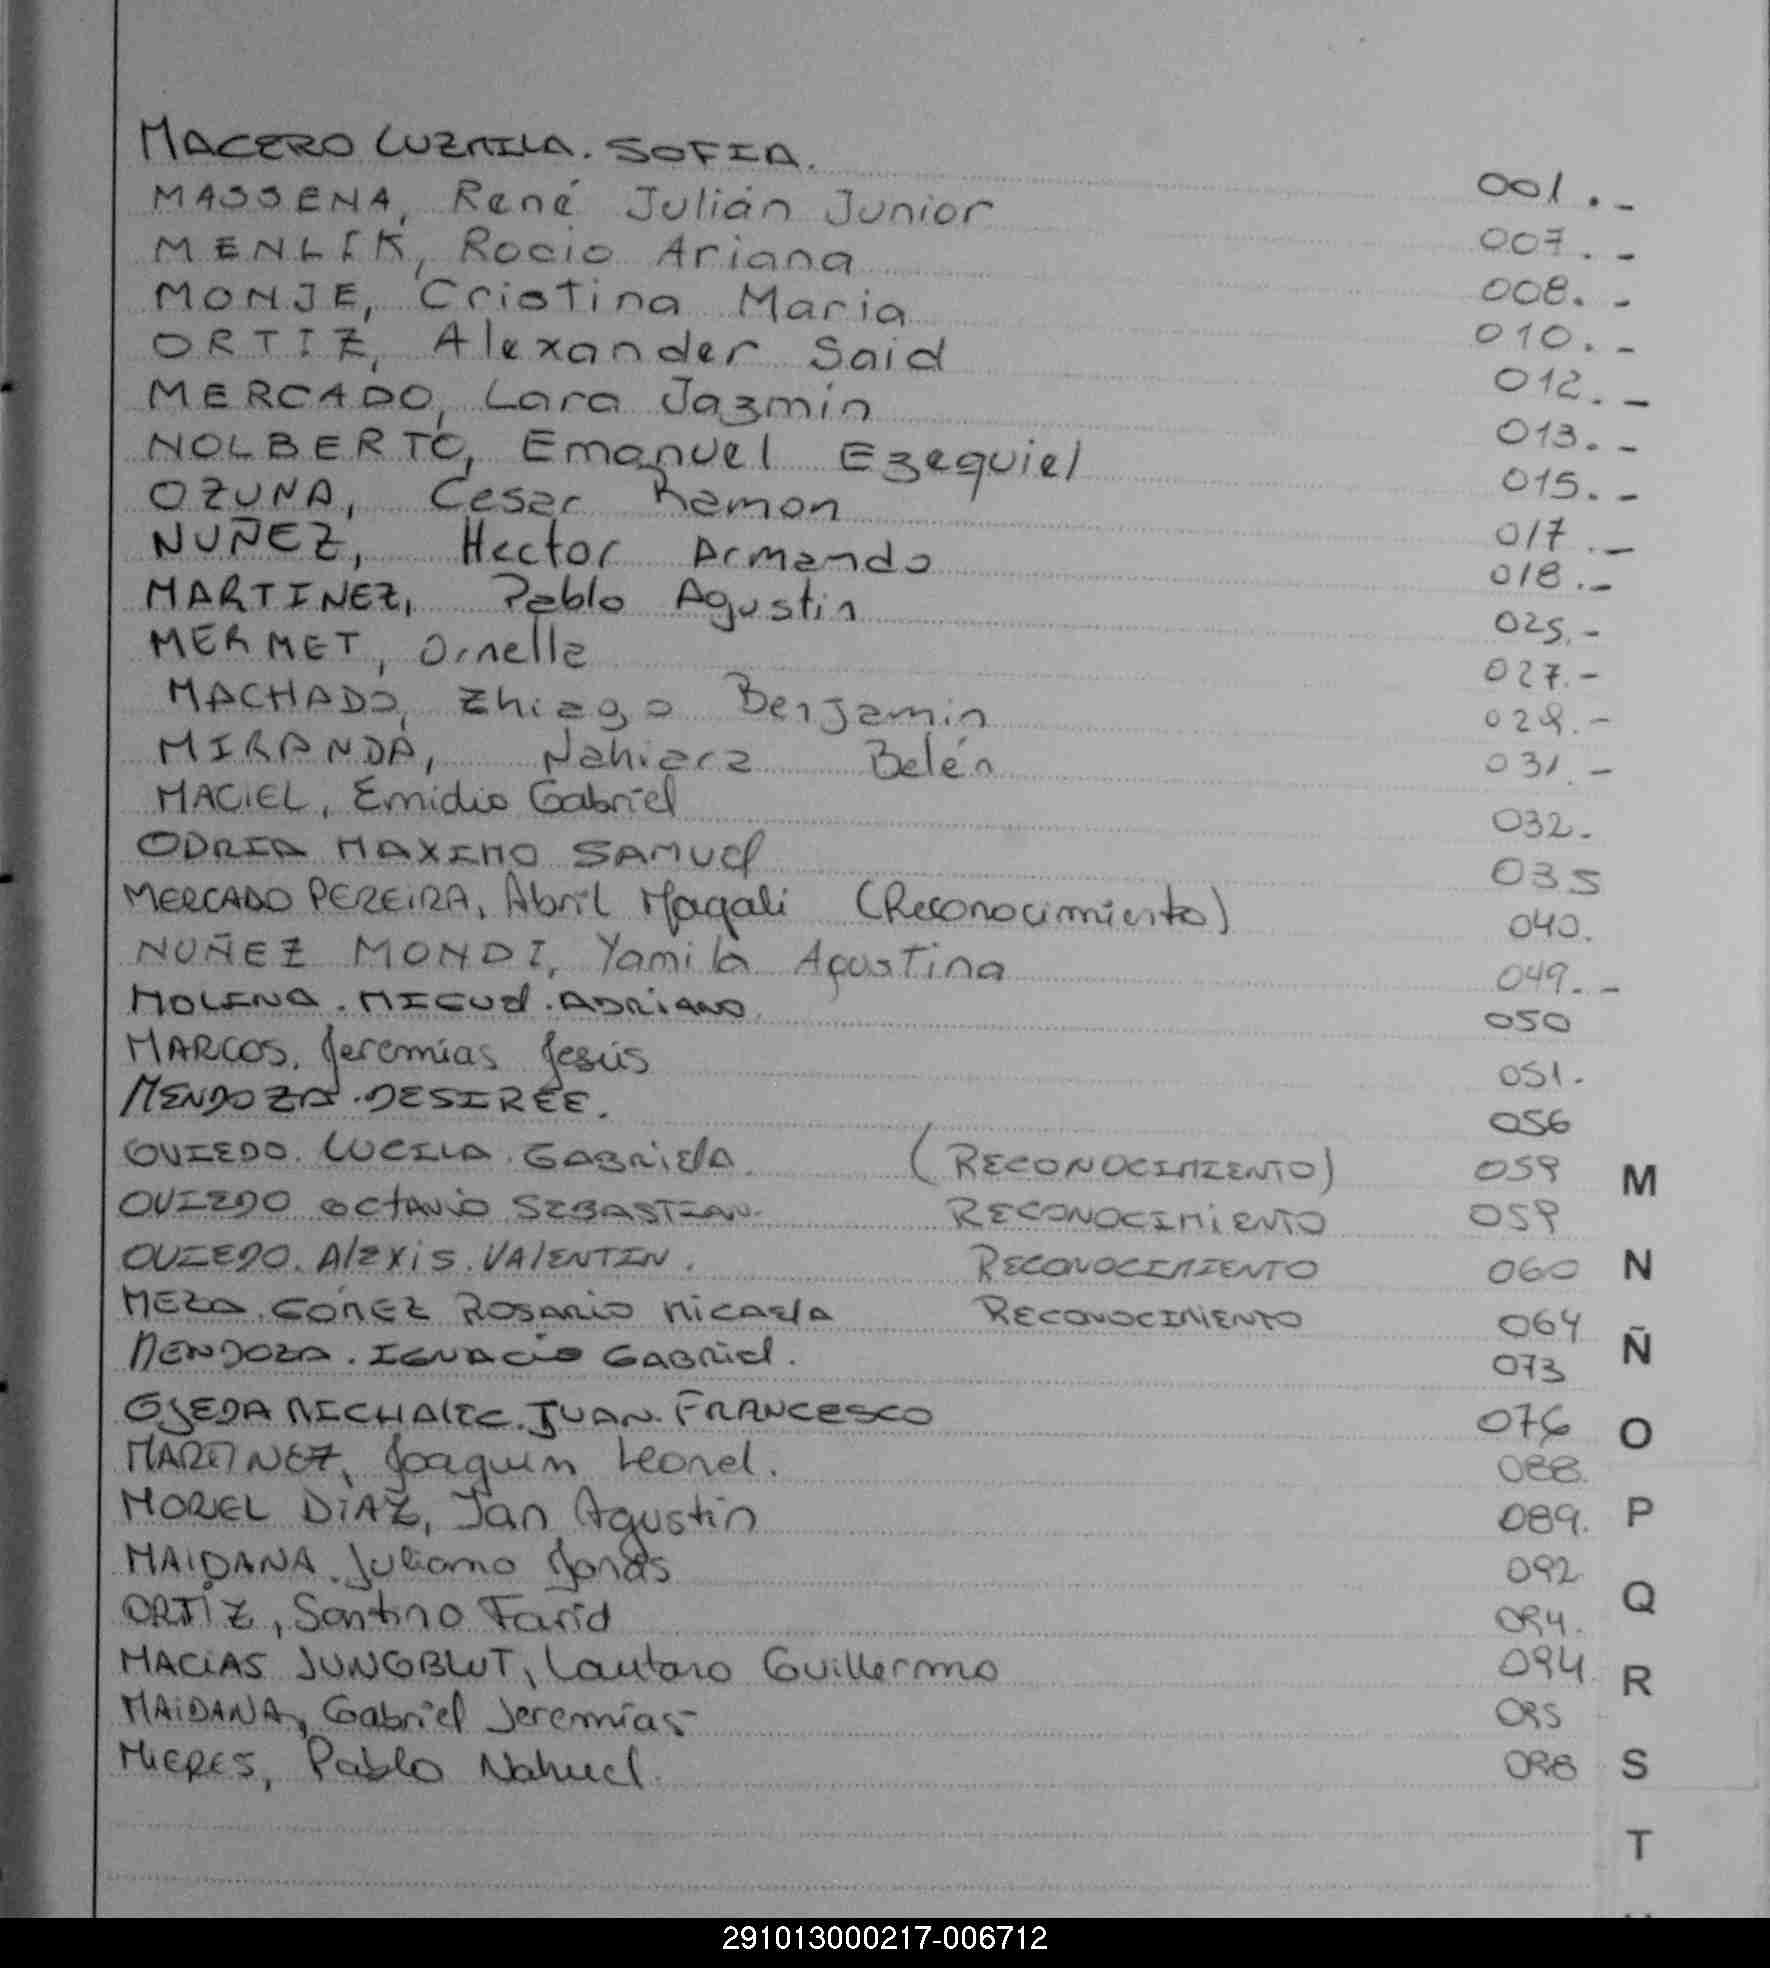 MACERO LUZMILA. SOFIA. 001.-
MASSENA, René Julián Junior 007.-
MENLIK, Rocio Ariana 008.-
MONJE, Cristina Maria 010.-
ORTIZ, Alexander Said 012.-
MERCADO, Lara Jazmín 013.-
NOLBERTO, Emanuel Ezequiel 015.-
OZUNA, Cesar Ramon 017.-
NUÑEZ, Hector Armando 018.-
MARTINEZ, Pablo Agustin 025.-
MERMET, Ornella 027.-
MACHADO, Zhiago Benjamin 029.-
MIRANDA, Nahiara Belén 031.-
MACIEL, Emidio Gabriel 032.
ODRIA MAXIMO SAMUEL 035
MERCADO PEREIRA, Abril Magali (Reconocimiento) 040.
NUÑEZ MONDI, Yamila Agustina 049.-
MOLINA. MIGUEL. ADRIANO. 050
MARCOS, Jeremías Jesús 051.
MENDOZA. DESIREE. 056
OVIEDO. LUCILA. GABRIELA. (RECONOCIMIENTO) 059
OVIEDO OCTAVIO SEBASTIAN. RECONOCIMIENTO 059
OVIEDO. ALEXIS. VALENTIN. RECONOCIMIENTO 060
MEZA. GÓMEZ ROSARIO MICAELA RECONOCIMIENTO 064
MENDOZA. IGNACIO GABRIEL. 073
OJEDA MICHALEC. JUAN. FRANCESCO 076
MARTINEZ, Joaquin Leonel. 088.
MORIEL DíAZ, Ian Agustín 089.
MAIDANA, Juliano Jonás 092
ORTÍZ, Santino Farid 094.
MACíAS JUNGBLUT, Lautaro Guillermo 094
MAIDANA, Gabriel Jeremías 095
MIERES, Pablo Nahuel. 098
M
N
Ñ
O
P
Q
R
S
T
291013000217-006712